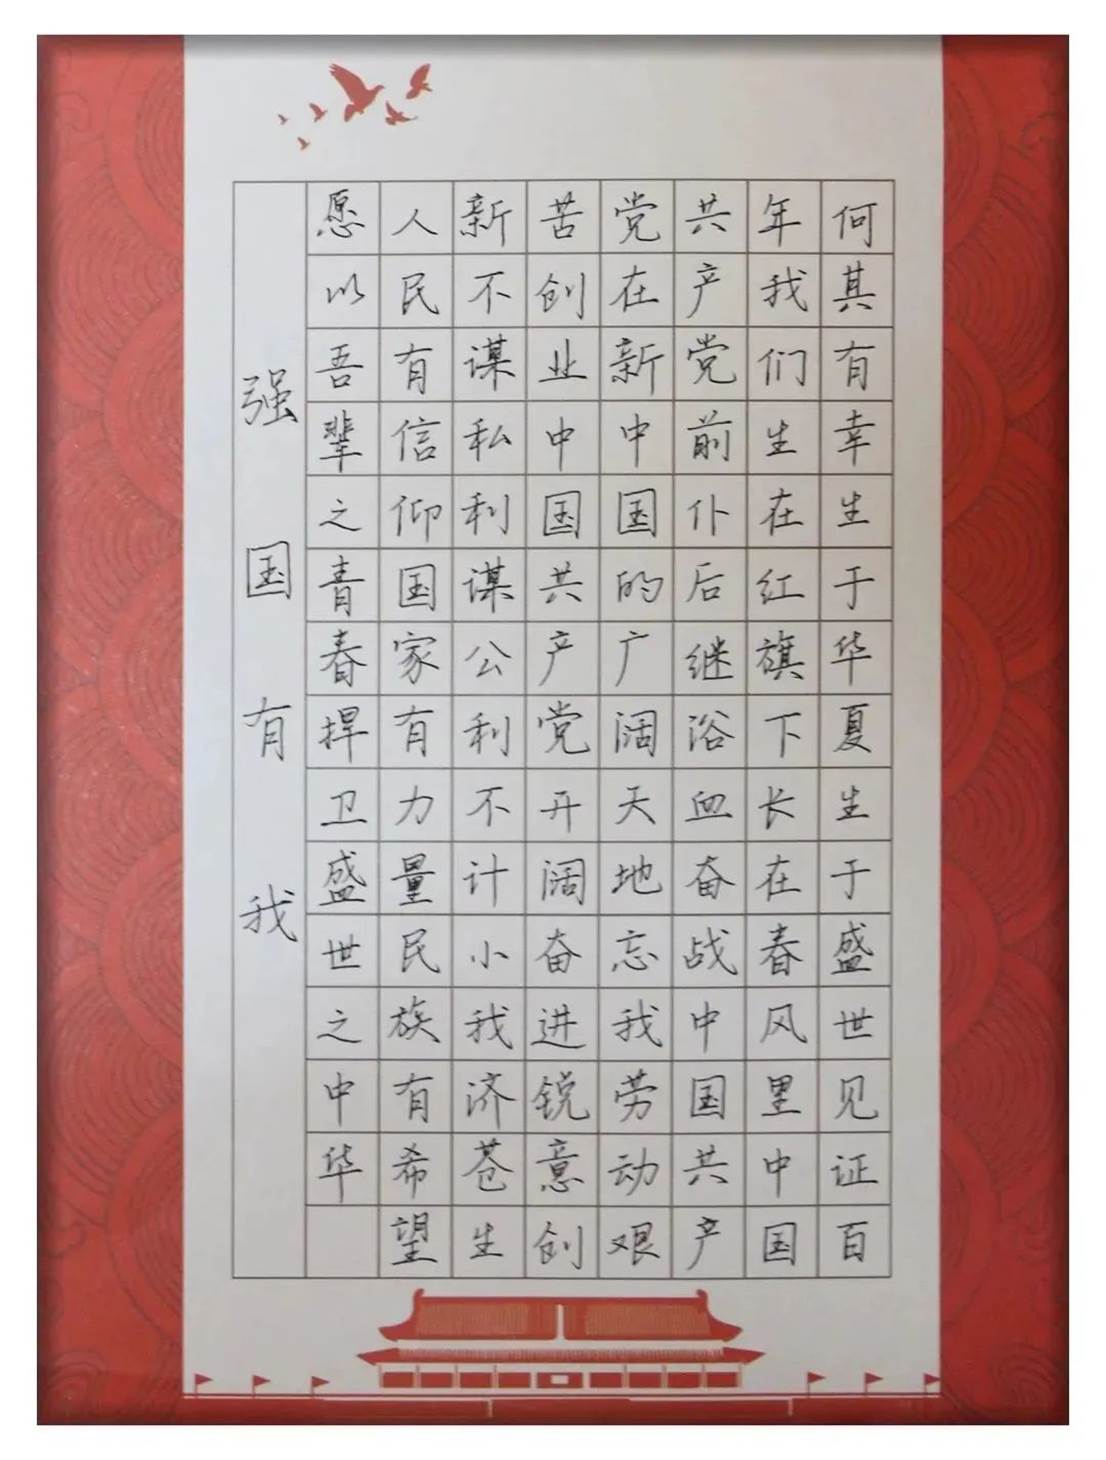 何其有幸生于华夏生于盛世见证百
年我们生在红旗下长在春风里中国
共产党前仆后继浴血奋战中国共产
党在新中国的广阔天地忘我劳动艰
苦创业中国共产党开阔奋进锐意创
新不谋私利谋公利不计小我济苍生
人民有信仰国家有力量民族有希望
愿以吾辈之青春捍卫盛世之中华
强国有我